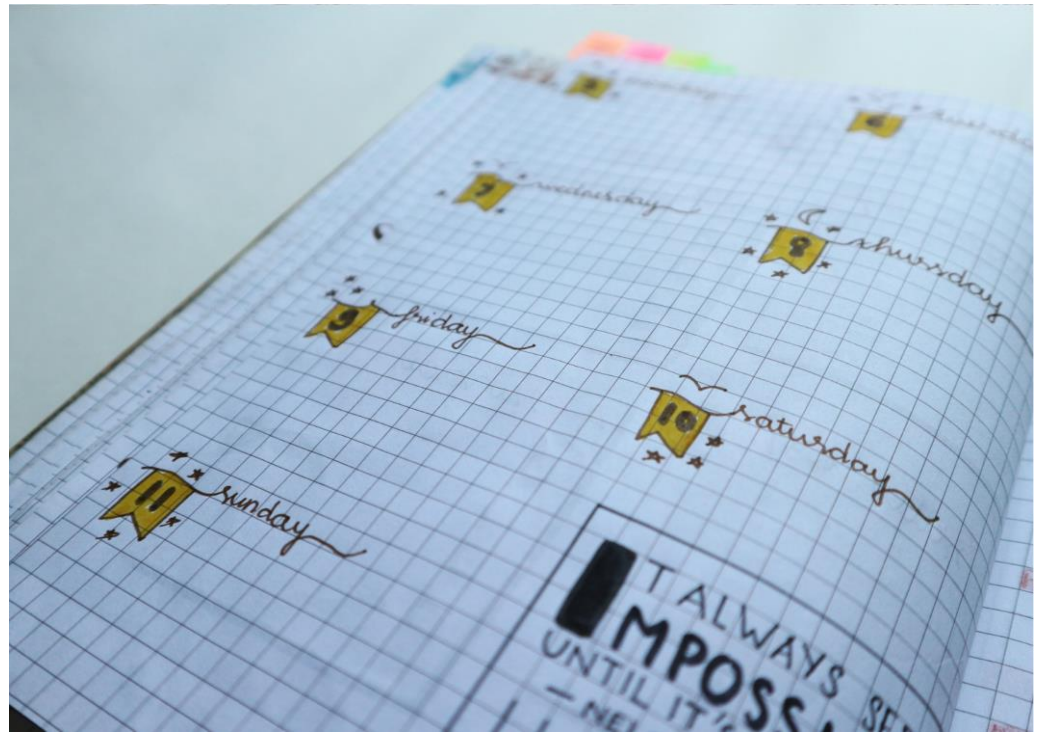 5 monday
6 tuesday
7 wednesday
8 thursday
9 friday
10 saturday
11 sunday
IT ALWAYS SE
IMPOSS
UNTIL IT'S
– NEL